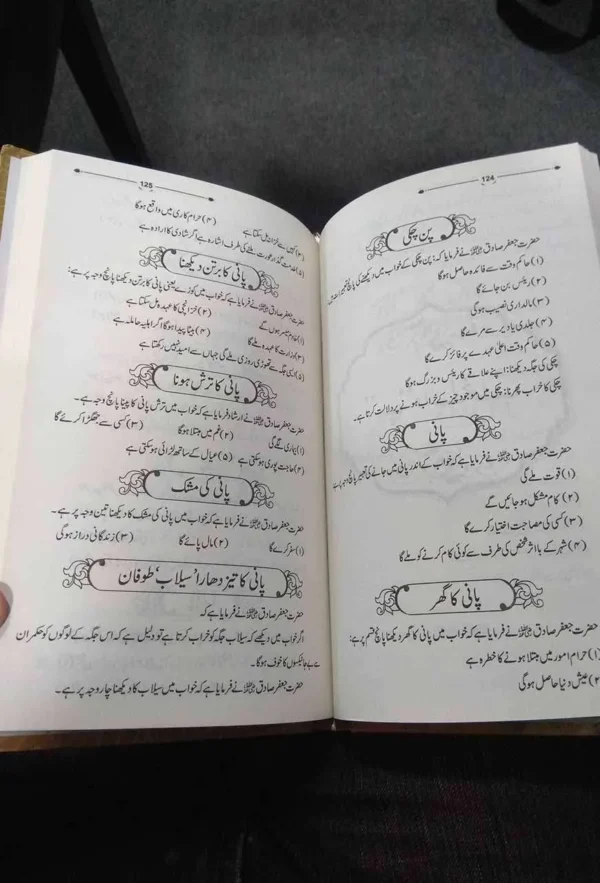 124
پن چکی
حضرت جعفر صادق ؓ نے فرمایا ہے کہ: پن چکی کے خواب میں دیکھنے کی تعبیر
(۱) حاکم وقت سے فائدہ حاصل ہوگا
(۲) رئیس بن جائے گا
(۳) مالداری نصیب ہوگی
(۴) جلدی یا دیر سے مرے گا
(۵) حاکم وقت اعلیٰ عہدے پر فائز کرے گا
چکی کی جگہ دیکھنا: اپنے علاقے کا رئیس و بزرگ ہوگا
چکی کا خراب پھرنا: چکی میں موجود چیز کے خراب ہونے پر دلالت کرتا ہے۔
پانی
حضرت جعفر صادق ؓ نے فرمایا ہے کہ خواب کے اندر پانی میں جانے کی تعبیر پانچ وجہ پر ہے
(۱) قوت ملے گی
(۲) کام مشکل ہو جائیں گے
(۳) کسی کی مصاحبت اختیار کرے گا
(۴) شہر کے بااثر شخص کی طرف سے کوئی کام کرنے کو ملے گا
پانی کا گھر
حضرت جعفر صادق ؓ نے فرمایا ہے کہ خواب میں پانی کا گھر دیکھنا پانچ قسم پر ہے:
(۱) حرام امور میں مبتلا ہونے کا خطرہ ہے
(۲) عیش دنیا حاصل ہوگی
125
(۳) کہیں سے خزانہ مل سکتا ہے (۴) حرام کاری میں واقع ہوگا
(۵) خدمت گزار عورت ملنے کی طرف اشارہ ہے اگر شادی کا ارادہ ہے
پانی کا برتن دیکھنا
حضرت جعفر صادق ؓ نے فرمایا ہے کہ خواب میں کوزے یعنی پانی کا برتن دیکھنا پانچ وجہ پر ہے:
(۱) خادم میسر ہوں گے (۲) خزانچی کا عہدہ مل سکتا ہے
(۳) وزارت کا عہدہ ملے گا (۴) بیٹا پیدا ہوگا اگر اہلیہ حاملہ ہے
(۵) ایسی جگہ سے تھوڑی روزی ملے گی جہاں سے امید نہیں رکھتا ہے
پانی کا ترش ہونا
حضرت جعفر صادق ؓ نے ارشاد فرمایا ہے کہ خواب میں ترش پانی کا پینا پانچ وجہ پر ہے۔
(۱) بیماری لگے گی (۲) غم میں مبتلا ہوگا (۳) کسی سے جھگڑا کرے گا
(۴) حاجت پوری ہو سکتی ہے (۵) عیال کے ساتھ لڑائی ہو سکتی ہے
پانی کی مشک
حضرت جعفر صادق ؓ نے فرمایا ہے کہ خواب میں پانی کی مشک کا دیکھنا تین وجہ پر ہے۔
(۱) سفر کرے گا (۲) مال پائے گا (۳) زندگانی دراز ہوگی
پانی کا تیز دھارا' سیلاب' طوفان
حضرت جعفر صادق ؓ نے فرمایا ہے کہ
اگر خواب میں دیکھے کہ سیلاب جگہ کو خراب کرتا ہے تو دلیل ہے کہ اس جگہ کے لوگوں کو حکمران
کا خوف ہوگا۔
حضرت جعفر صادق ؓ نے فرمایا ہے کہ خواب میں سیلاب کا دیکھنا چار وجہ پر ہے۔